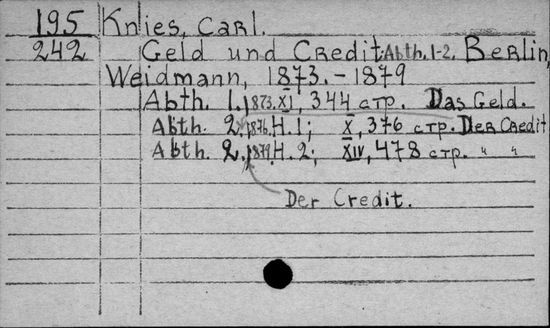 195 Knies, Carl.
242 Geld und Credit. Abth. 1-2. Berlin,
Weidmann, 1873. - 1879
Abth. 1. 1873. XI, 344 стр. Das Geld.
Abth. 2. 1876. H. 1; X, 376 стр. Der Credit
Abth. 2. 1879. H. 2; XIV, 478 стр. " "
Der Credit.